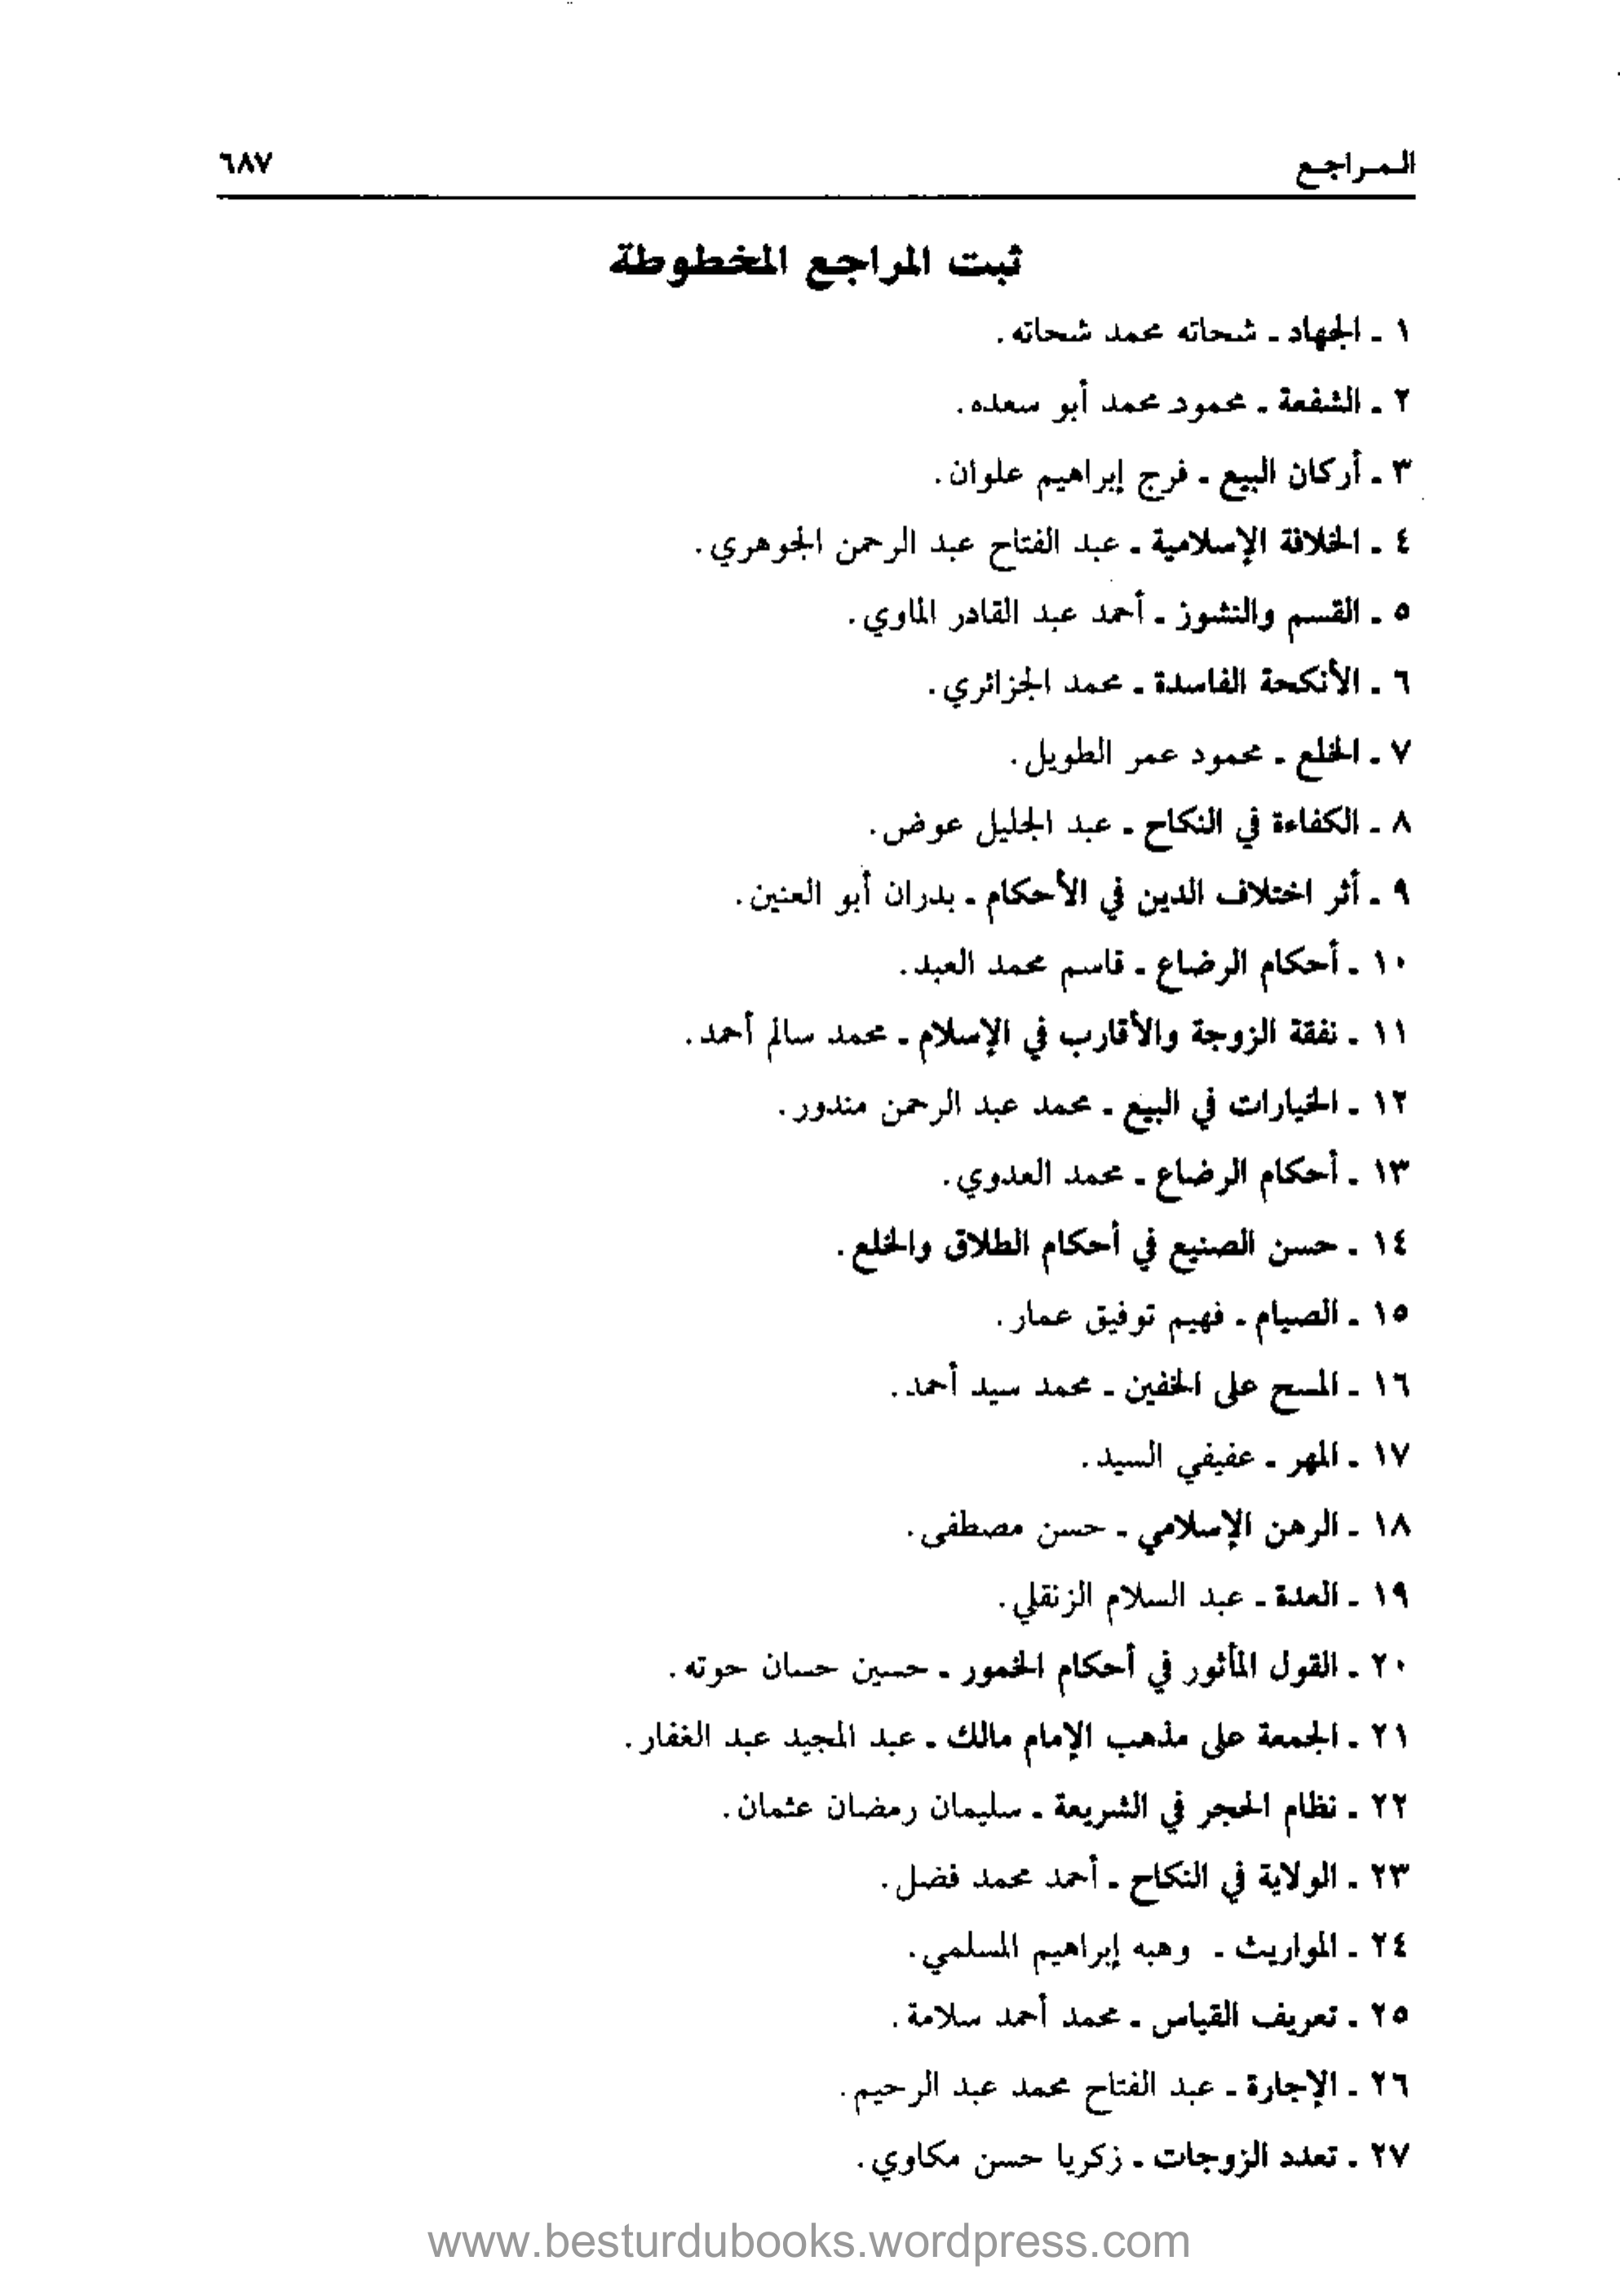 المراجع ٦٨٧
ثبت المراجع المخطوطة
١ ـ الجهاد ـ شحاته محمد شحاته.
٢ ـ الشفعة ـ محمود محمد أبو سعده.
٣ ـ أركان البيع ـ فرج إبراهيم علوان.
٤ ـ الخلافة الإسلامية ـ عبد الفتاح عبد الرحمن الجوهري.
٥ ـ القسم والنشوز ـ أحمد عبد القادر الماوي.
٦ ـ الأنكحة الفاسدة ـ محمد الجزائري.
٧ ـ الخلع ـ محمود عمر الطويل.
٨ ـ الكفاءة في النكاح ـ عبد الجليل عوض.
٩ ـ أثر اختلاف الدين في الأحكام ـ بدران أبو العنين.
١٠ ـ أحكام الرضاع ـ قاسم محمد العبد.
١١ ـ نفقة الزوجة والأقارب في الإسلام ـ محمد سالم أحمد.
١٢ ـ الخيارات في البيع ـ محمد عبد الرحمن مندور.
١٣ ـ أحكام الرضاع ـ محمد العدوي.
١٤ ـ حسن الصنيع في أحكام الطلاق والخلع.
١٥ ـ الصيام ـ فهيم توفيق عمار.
١٦ ـ المسح على الخفين ـ محمد سيد أحمد.
١٧ ـ المهر ـ عفيفي السيد.
١٨ ـ الرهن الإسلامي ـ حسن مصطفى.
١٩ ـ العدة ـ عبد السلام الزنقلي.
٢٠ ـ القول المأثور في أحكام الخمور ـ حسين حسان حوته.
٢١ ـ الجمعة على مذهب الإمام مالك ـ عبد المجيد عبد الغفار.
٢٢ ـ نظام الحجر في الشريعة ـ سليمان رمضان عثمان.
٢٣ ـ الولاية في النكاح ـ أحمد محمد فضل.
٢٤ ـ المواريث ـ وهبه إبراهيم المسلمي.
٢٥ ـ تعريف القياس ـ محمد أحمد سلامة.
٢٦ ـ الإجارة ـ عبد الفتاح محمد عبد الرحيم.
٢٧ ـ تعدد الزوجات ـ زكريا حسن مكاوي.
www.besturdubooks.wordpress.com